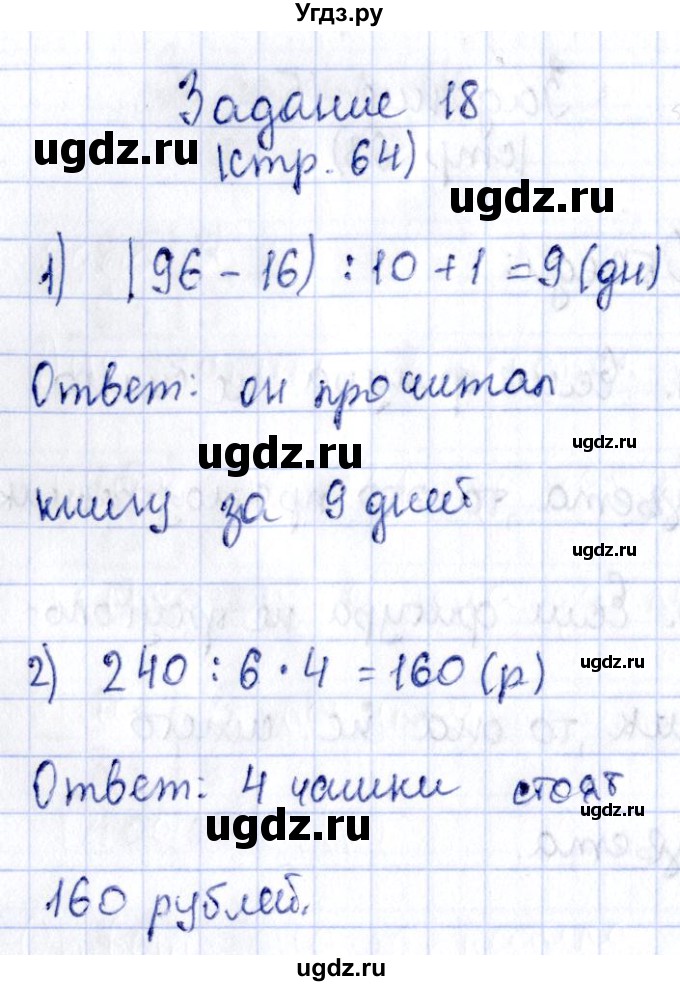 Угдз.ру
Задание 18
ugdz.ru
(стр. 64)
ugdz.ru
1) (96 - 16) : 10 + 1 = 9 (дн)
Ответ: он прочитал
ugdz.ru
ugdz.ru
книгу за 9 дней
ugdz.ru
2) 240 : 6 · 4 = 160 (р)
ugdz.ru
Ответ: 4 чашки стоят
ugdz.ru
ugdz.ru
160 рублей.
ugdz.ru